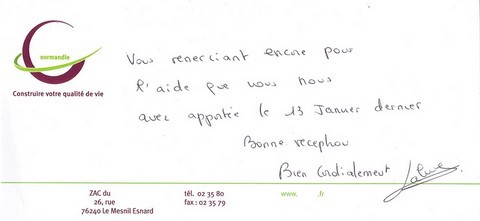 normandie
Construire votre qualité de vie
Vous remerciant encore pour
l'aide que vous nous
avez apportée le 13 Janvier dernier
Bonne reception
Bien Cordialement
ZAC du
26, rue
76240 Le Mesnil Esnard
tél. 02 35 80
fax : 02 35 79
www. .fr